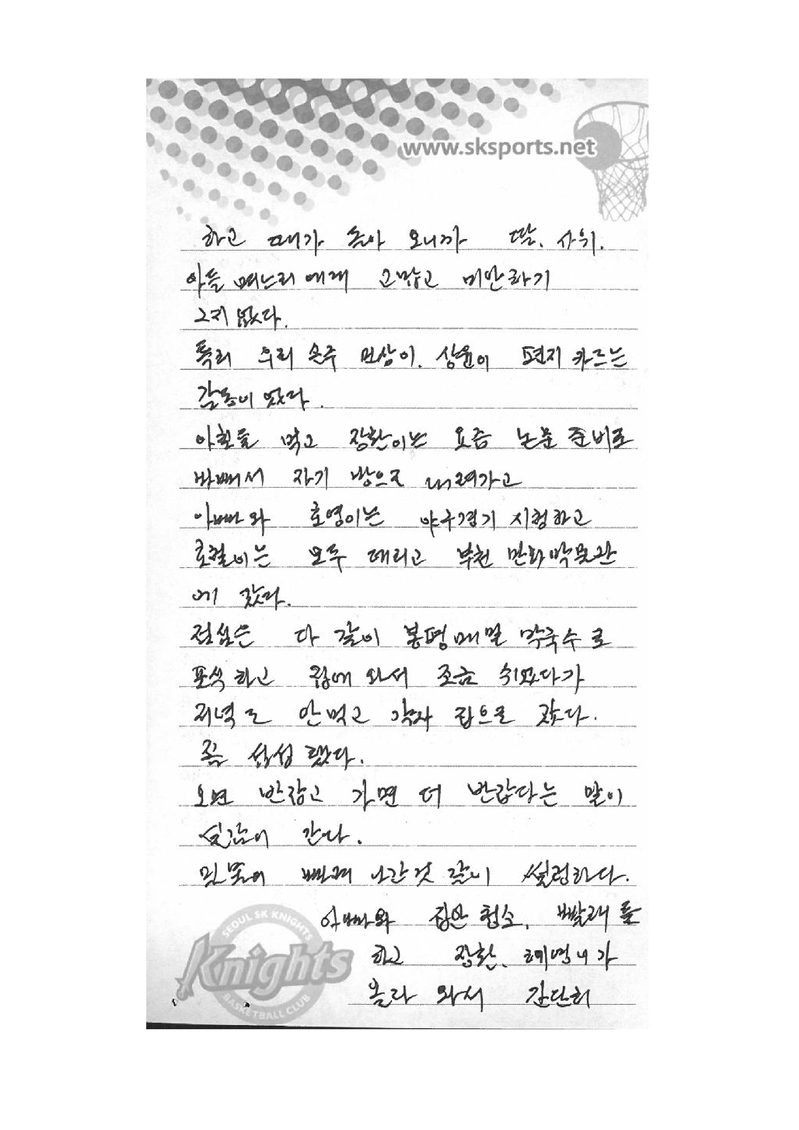 www.sksports.net
하고 때가 돌아 오니까 딸, 사위,
아들 며느리 에게 고맙고 미안하기
그지 없다.
특히 우리 손주 상윤이 편지 카드는
감동이 었다.
아침을 먹고 장환이는 요즘 논문 준비로
바빠서 자기 방으로 내려가고
아빠와 호영이는 야구경기 시청하고
호철이는 모두 데리고 부천 만화박물관
에 갔다.
점심은 다 같이 봉평메밀 막국수로
포식하고 집에 와서 조금 쉬었다가
저녁도 안먹고 각자 집으로 갔다.
좀 섭섭 했다.
오면 반갑고 가면 더 반갑다는 말이
실감이 간다.
썰렁하다.
아빠와 집안 청소, 빨래를
하고 장환,
올라 와서 간단히
SEOUL SK KNIGHTS
Knights
BASKETBALL CLUB